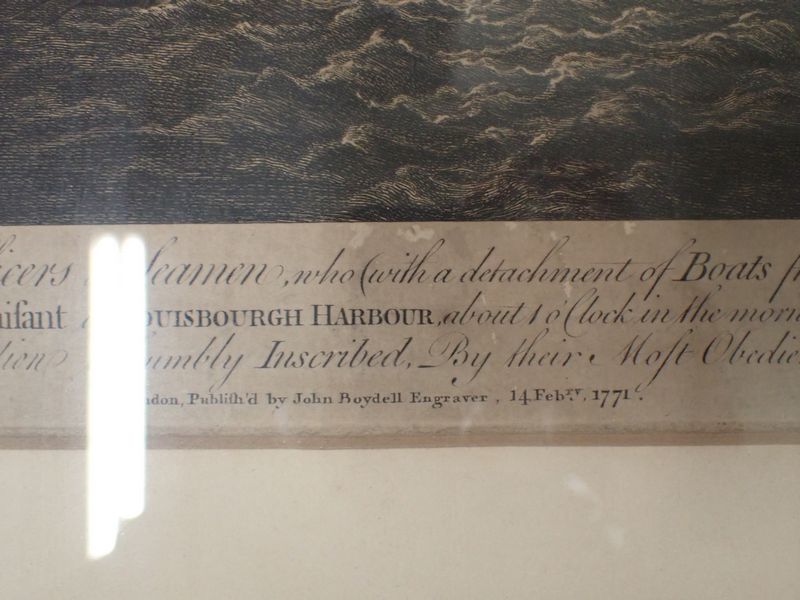 Seamen, who (with a detachment of Boats
OUISBOURGH HARBOUR, about 1 o Clock in the morn
Inscribed, By their Moſt Obedie
ndon, Publiſh'd by John Boydell Engraver, 14 Feb.ry, 1771.